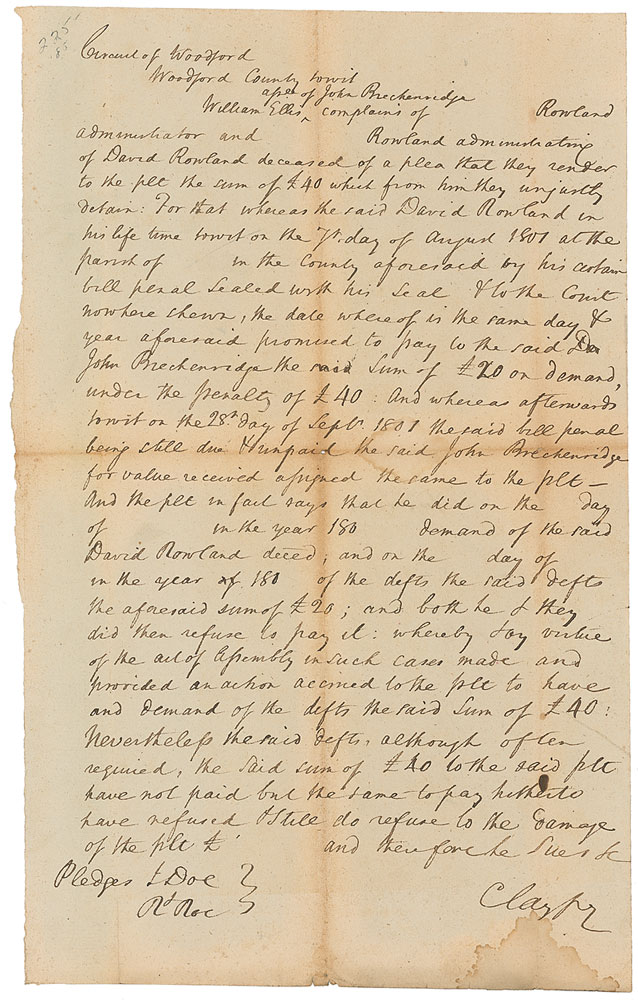 225
8
Circuit of Woodford
Woodford County towit
assee of John Breckenridge
William Ellis ^ complains of Rowland
administrator and Rowland administrating
of David Rowland deceased of a plea that they render
to the plt the sum of £40 which from him they unjustly
detain: For that whereas the said David Rowland in
his life time towit on the 7th day of August 1801 at the
parish of in the County aforesaid by his certain
bill penal Sealed with his Seal & to the Court
nowhere shewn, the date whereof is the same day &
year aforesaid promised to pay to the said
John Breckenridge the said Sum of £20 on demand,
under the penalty of £40: And whereas afterwards
towit on the 28th day of Septr. 1801 the said bill penal
being still due & unpaid the said John Breckenridge
for value received assigned the same to the plt —
And the plt in fact says that he did on the day
of in the year 180 demand of the said
David Rowland deced; and on the day of
in the year of 180 of the defts the said defts
the aforesaid sum of £20; and both he & they
did then refuse to pay it: whereby & by virtue
of the act of Assembly in such cases made and
provided an action accrued to the plt to have
and demand of the defts the said Sum of £40:
Nevertheless the said defts. although often
required, the said sum of £40 to the said plt
have not paid but the same to pay hitherto
have refused & Still do refuse to the Damage
of the plt £ and therefore he Sues &c
Pledges J. Doe }
Rd Roe }
Clay pq